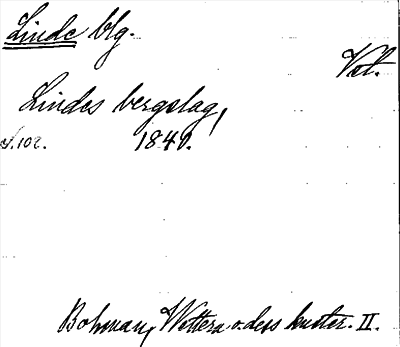 Linde blg.
Vst.
Lindes bergslag,
s. 102. 1840.
Bohman, Wettern o. dess kuster. II.